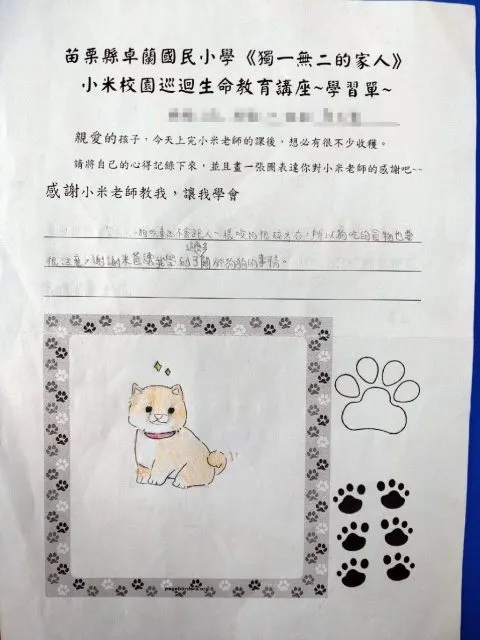 苗栗縣卓蘭國民小學《獨一無二的家人》
小米校園巡迴生命教育講座~學習單~
親愛的孩子，今天上完小米老師的課後，想必有很不少收穫。
請將自己的心得記錄下來，並且畫一張圖表達你對小米老師的感謝吧~~
感謝小米老師教我，讓我學會
狗吃東西不會跟人一樣咬的很碎才吞，所以狗吃的食物也要
很注意，謝謝米爸讓我學到了許多關於狗狗的事情。
pageborders.org